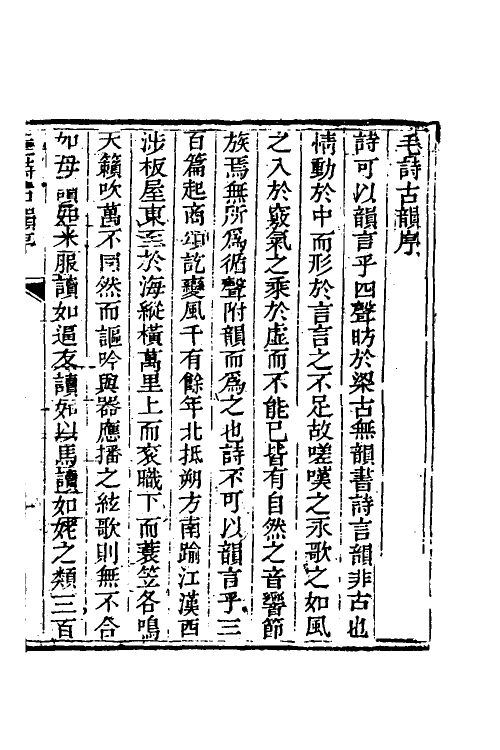 毛詩古韻序
詩可以韻言乎四聲昉於梁古無韻書詩言韻非古也
情動於中而形於言言之不足故嗟嘆之永歌之如風
之入於竅氣之乘於虛而不能已皆有自然之音響節
族焉無所爲循聲附韻而爲之也詩不可以韻言乎三
百篇起商頌訖變風千有餘年北抵朔方南踰江漢西
涉板屋東至於海縱橫萬里上而袞職下而蓑笠各鳴
天籟吹萬不同然而謳吟與器應播之絃歌則無不合
如母讀如米服讀如逼友讀如以馬讀如姥之類三百
毛詩古韻序